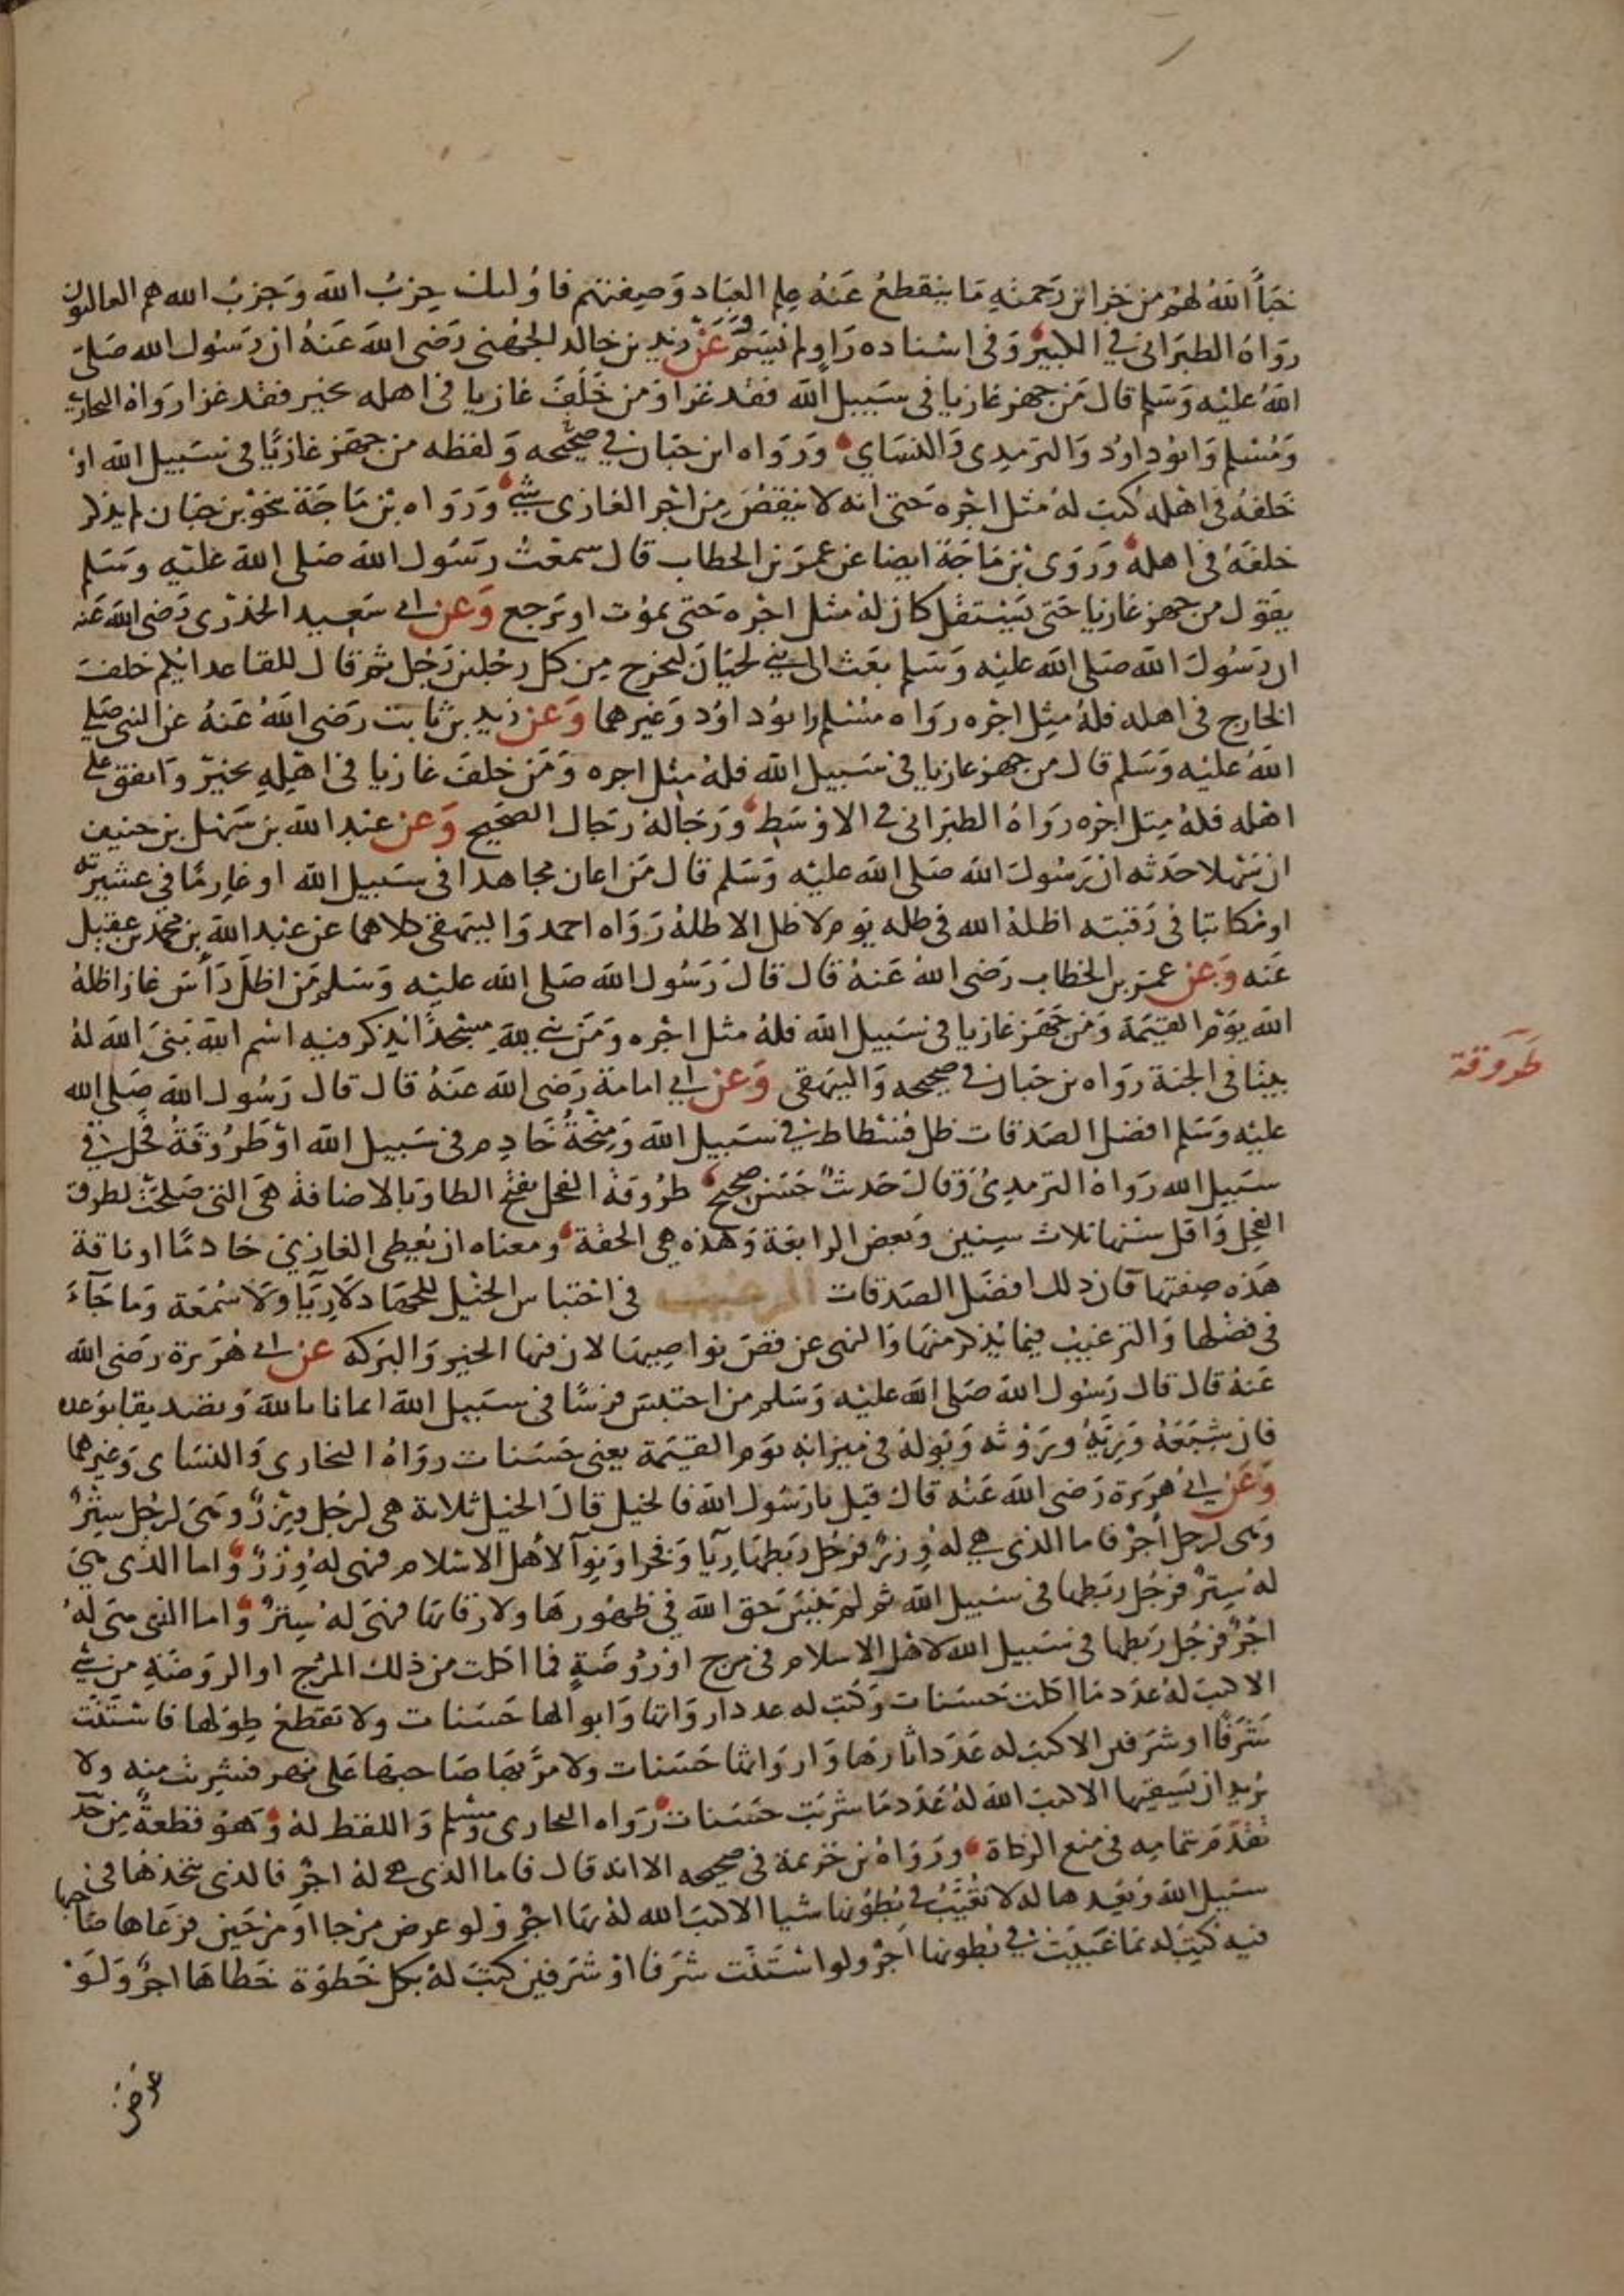 خبأ الله لهم من خزائن رحمته ما ينقطع عنه علم العباد وصفتهم فاولئك حزب الله وحزب الله هم الغالبون
رواه الطبراني في الكبير وفي اسناده راو لم يسم وعن زيد بن خالد الجهني رضي الله عنه ان رسول الله صلى
الله عليه وسلم قال من جهز غازيا في سبيل الله فقد غزا ومن خلف غازيا في اهله بخير فقد غزا رواه البخاري
ومسلم وابو داود والترمذي والنساي ورواه ابن حبان في صحيحه ولفظه من جهز غازيا في سبيل الله او
خلفه في اهله كتب له مثل اجره حتى انه لا ينقص من اجر الغازي شي ورواه بن ماجة بنحو بن حبان لم يذكر
خلفه في اهله وروى بن ماجة ايضا عن عمر بن الخطاب قال سمعت رسول الله صلى الله عليه وسلم
يقول من جهز غازيا حتى يستقل كان له مثل اجره حتى يموت او يرجع وعن ابي سعيد الخدري رضي الله عنه
ان رسول الله صلى الله عليه وسلم بعث الى بني لحيان ليخرج من كل رجلين رجل ثم قال للقاعد ايكم خلف
الخارج في اهله فله مثل اجره رواه مسلم وابو داود وغيرهما وعن زيد بن ثابت رضي الله عنه عن النبي صلى
الله عليه وسلم قال من جهز غازيا في سبيل الله فله مثل اجره ومن خلف غازيا في اهله بخير وانفق على
اهله فله مثل اجره رواه الطبراني في الاوسط ورجاله رجال الصحيح وعن عبد الله بن سهل بن حنيف
ان سهلا حدثه ان رسول الله صلى الله عليه وسلم قال من اعان مجاهدا في سبيل الله او غارما في عشيرته
او مكاتبا في رقبته اظله الله في ظله يوم لا ظل الا ظله رواه احمد والبيهقي كلاهما عن عبد الله بن محمد بن عقيل
عنه وعن عمر بن الخطاب رضي الله عنه قال قال رسول الله صلى الله عليه وسلم من اظل رأس غاز اظله
الله يوم القيمة ومن جهز غازيا في سبيل الله فله مثل اجره ومن بني لله مسجدا يذكر فيه اسم الله بنى الله له
بيتا في الجنة رواه بن حبان في صحيحه والبيهقي وعن ابي امامة رضي الله عنه قال قال رسول الله صلى الله
طروقة
عليه وسلم افضل الصدقات ظل فسطاط في سبيل الله ومنحة خادم في سبيل الله او طروقة فحل في
سبيل الله رواه الترمدي وقال حديث حسن صحيح طروقة الفحل بفتح الطا وبالاضافة هي التي صلحت لطرق
الفحل واقل سنها ثلاث سنين وبعض الرابعة وهذه هي الحقة ومعناه ان يعطي الغازي خادما او ناقة
هذه صفتها فان ذلك افضل الصدقات الترغيب في احتباس الخيل للجهاد لا ريا ولا سمعة وما جآء
في فضلها والترغيب فيما يذكر منها والنهي عن قص نواصيها لان فيها الخير والبركة عن ابي هريرة رضي الله
عنه قال قال رسول الله صلى الله عليه وسلم من احتبس فرسا في سبيل الله ايمانا بالله وتصديقا بوعده
فان شبعه وريه وروثه وبوله في ميزانه يوم القيمة يعني حسنات رواه البخاري والنساي وغيرهما
وعن ابي هريرة رضي الله عنه قال قيل يا رسول الله فالخيل قال الخيل ثلاثة هي لرجل وزر وهي لرجل ستر
وهي لرجل اجر فاما الذي هي له وزر فرجل ربطها ريا وفخرا ونوآ لاهل الاسلام فهي له وزر واما الذي هي
له ستر فرجل ربطها في سبيل الله ثم لم ينس حق الله في ظهورها ولا رقابها فهي له ستر واما الذي هي له
اجر فرجل ربطها في سبيل الله لاهل الاسلام في مرج او روضة فما اكلت من ذلك المرج او الروضة من شي
الا كتب له عدد ما اكلت حسنات وكتب له عدد ارواثها وابوالها حسنات ولا تقطع طولها فاستنت
شرفا او شرفين الا كتب له عدد اثارها وارواثها حسنات ولا مر بها صاحبها على نهر فشربت منه ولا
يريد ان يسقيها الا كتب الله له عدد ما شربت حسنات رواه البخاري ومسلم واللفظ له وهو قطعة من حد
تقدم بتمامه في منع الزكاة ورواه بن خزيمة في صحيحه الا انه قال فاما الذي هي له اجر فالذي يتخذها في
سبيل الله ويعدها له لا تغيب في بطونها شيا الا كتب الله له بها اجر ولو عرض مرجا او مرجين فرعاها صاحبها
فيه كتب له بما غيبت في بطونها اجر ولو استنت شرفا او شرفين كتب له بكل خطوة خطاها اجر ولو
عرض